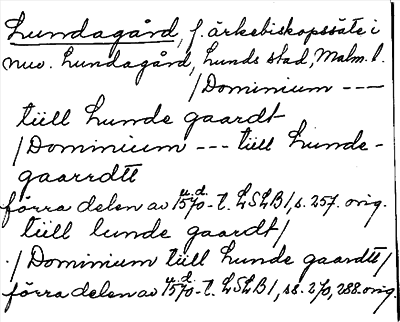 Lundagård, f. ärkebiskopssäte i
nuv. Lundagård, Lunds stad, Malm. l.
/Dominium ---
tiill Lunde gaardt
/Dominium --- tiill Lunde-
gaarrdtt
förra delen av u.d. 1570-t. LSLB1, s. 257. orig.
tiill lunde gaardt/
./Dominium tiill Lunde gaardtt/
förra delen av u.d. 1570-t. LSLB1, ss. 270, 288. orig.